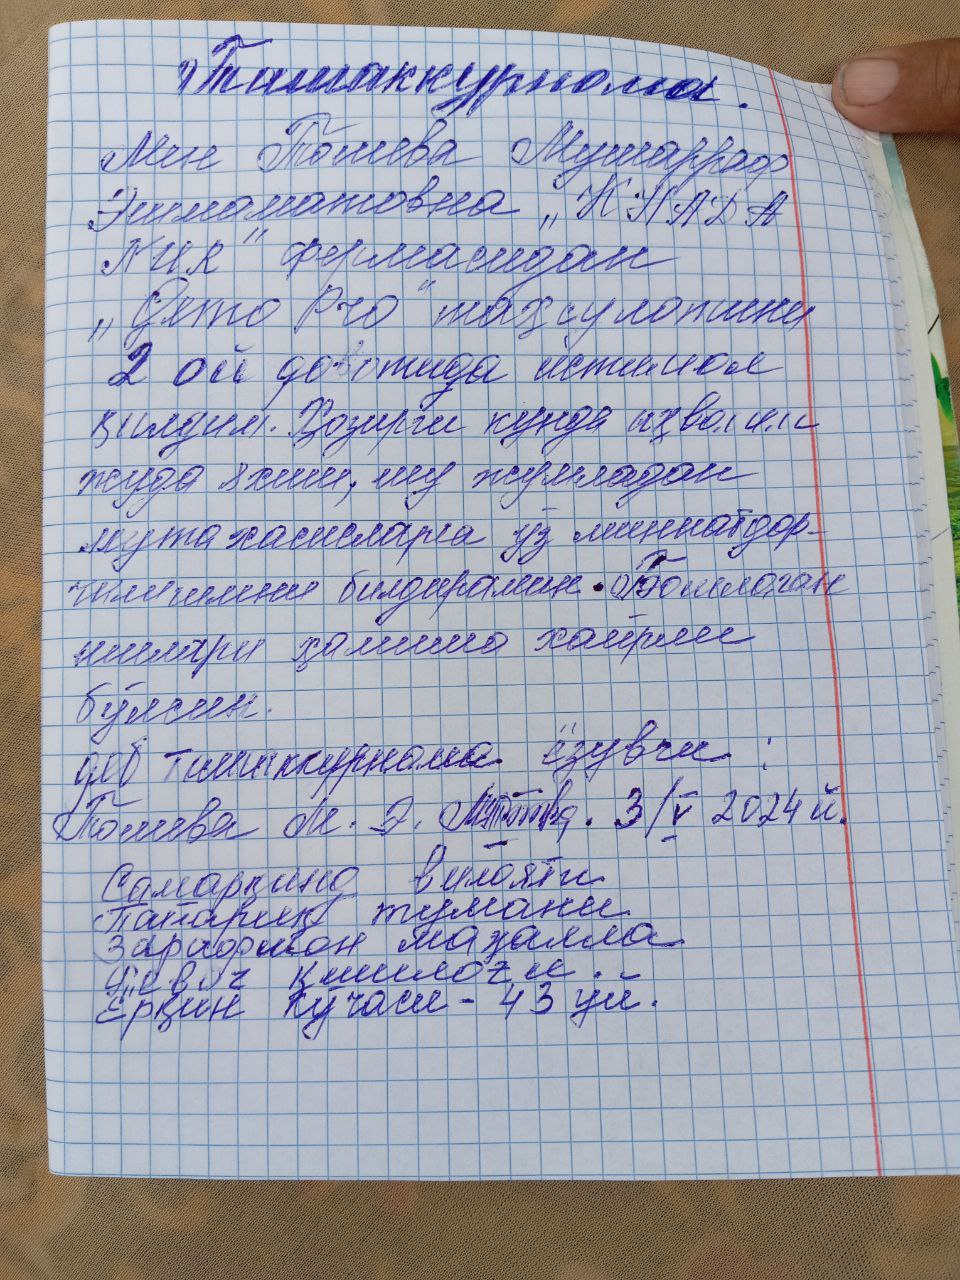 Ташаккурнома.
Мен Тошева Мушарраф
Эшмаматовна „К НАДА
NUR" фермасидан
„Дето Pro" маҳсулотини
2 ой довомида истимол
қилдим. Ҳозирги кунда аҳволим
жуда яхши, шу жумладан
мутахасисларга ўз миннатдор-
чилигимни билдираман. Бошлаган
ишлари ҳамиша хайрли
бўлсин.
деб ташаккурнома ёзувчи:
Тошева М. Э. 3/V 2024 й.
Самарқанд вилояти
Пайариқ тумани
Зарафшон маҳалла
қишлоғи.
Ёрқин кўчаси - 43 уй.